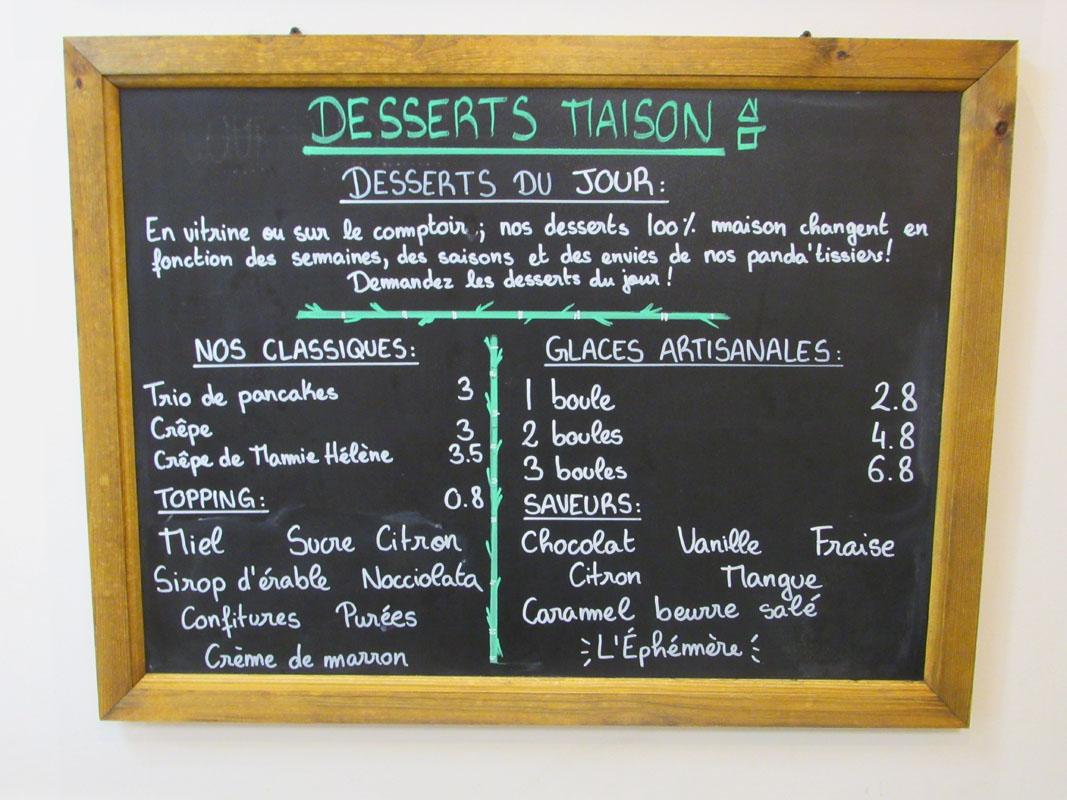 DESSERTS MAISON
DESSERTS DU JOUR:
En vitrine ou sur le comptoir ; nos desserts 100% maison changent en
fonction des semaines, des saisons et des envies de nos panda'tissiers!
Demandez les desserts du jour !
NOS CLASSIQUES:
Trio de pancakes 3
Crêpe 3
Crêpe de Mamie Hélène 3.5
TOPPING: 0.8
Miel Sucre Citron
Sirop d'érable Nocciolata
Confitures Purées
Crème de marron
GLACES ARTISANALES:
1 boule 2.8
2 boules 4.8
3 boules 6.8
SAVEURS:
Chocolat Vanille Fraise
Citron Mangue
Caramel beurre salé
L'Éphémère